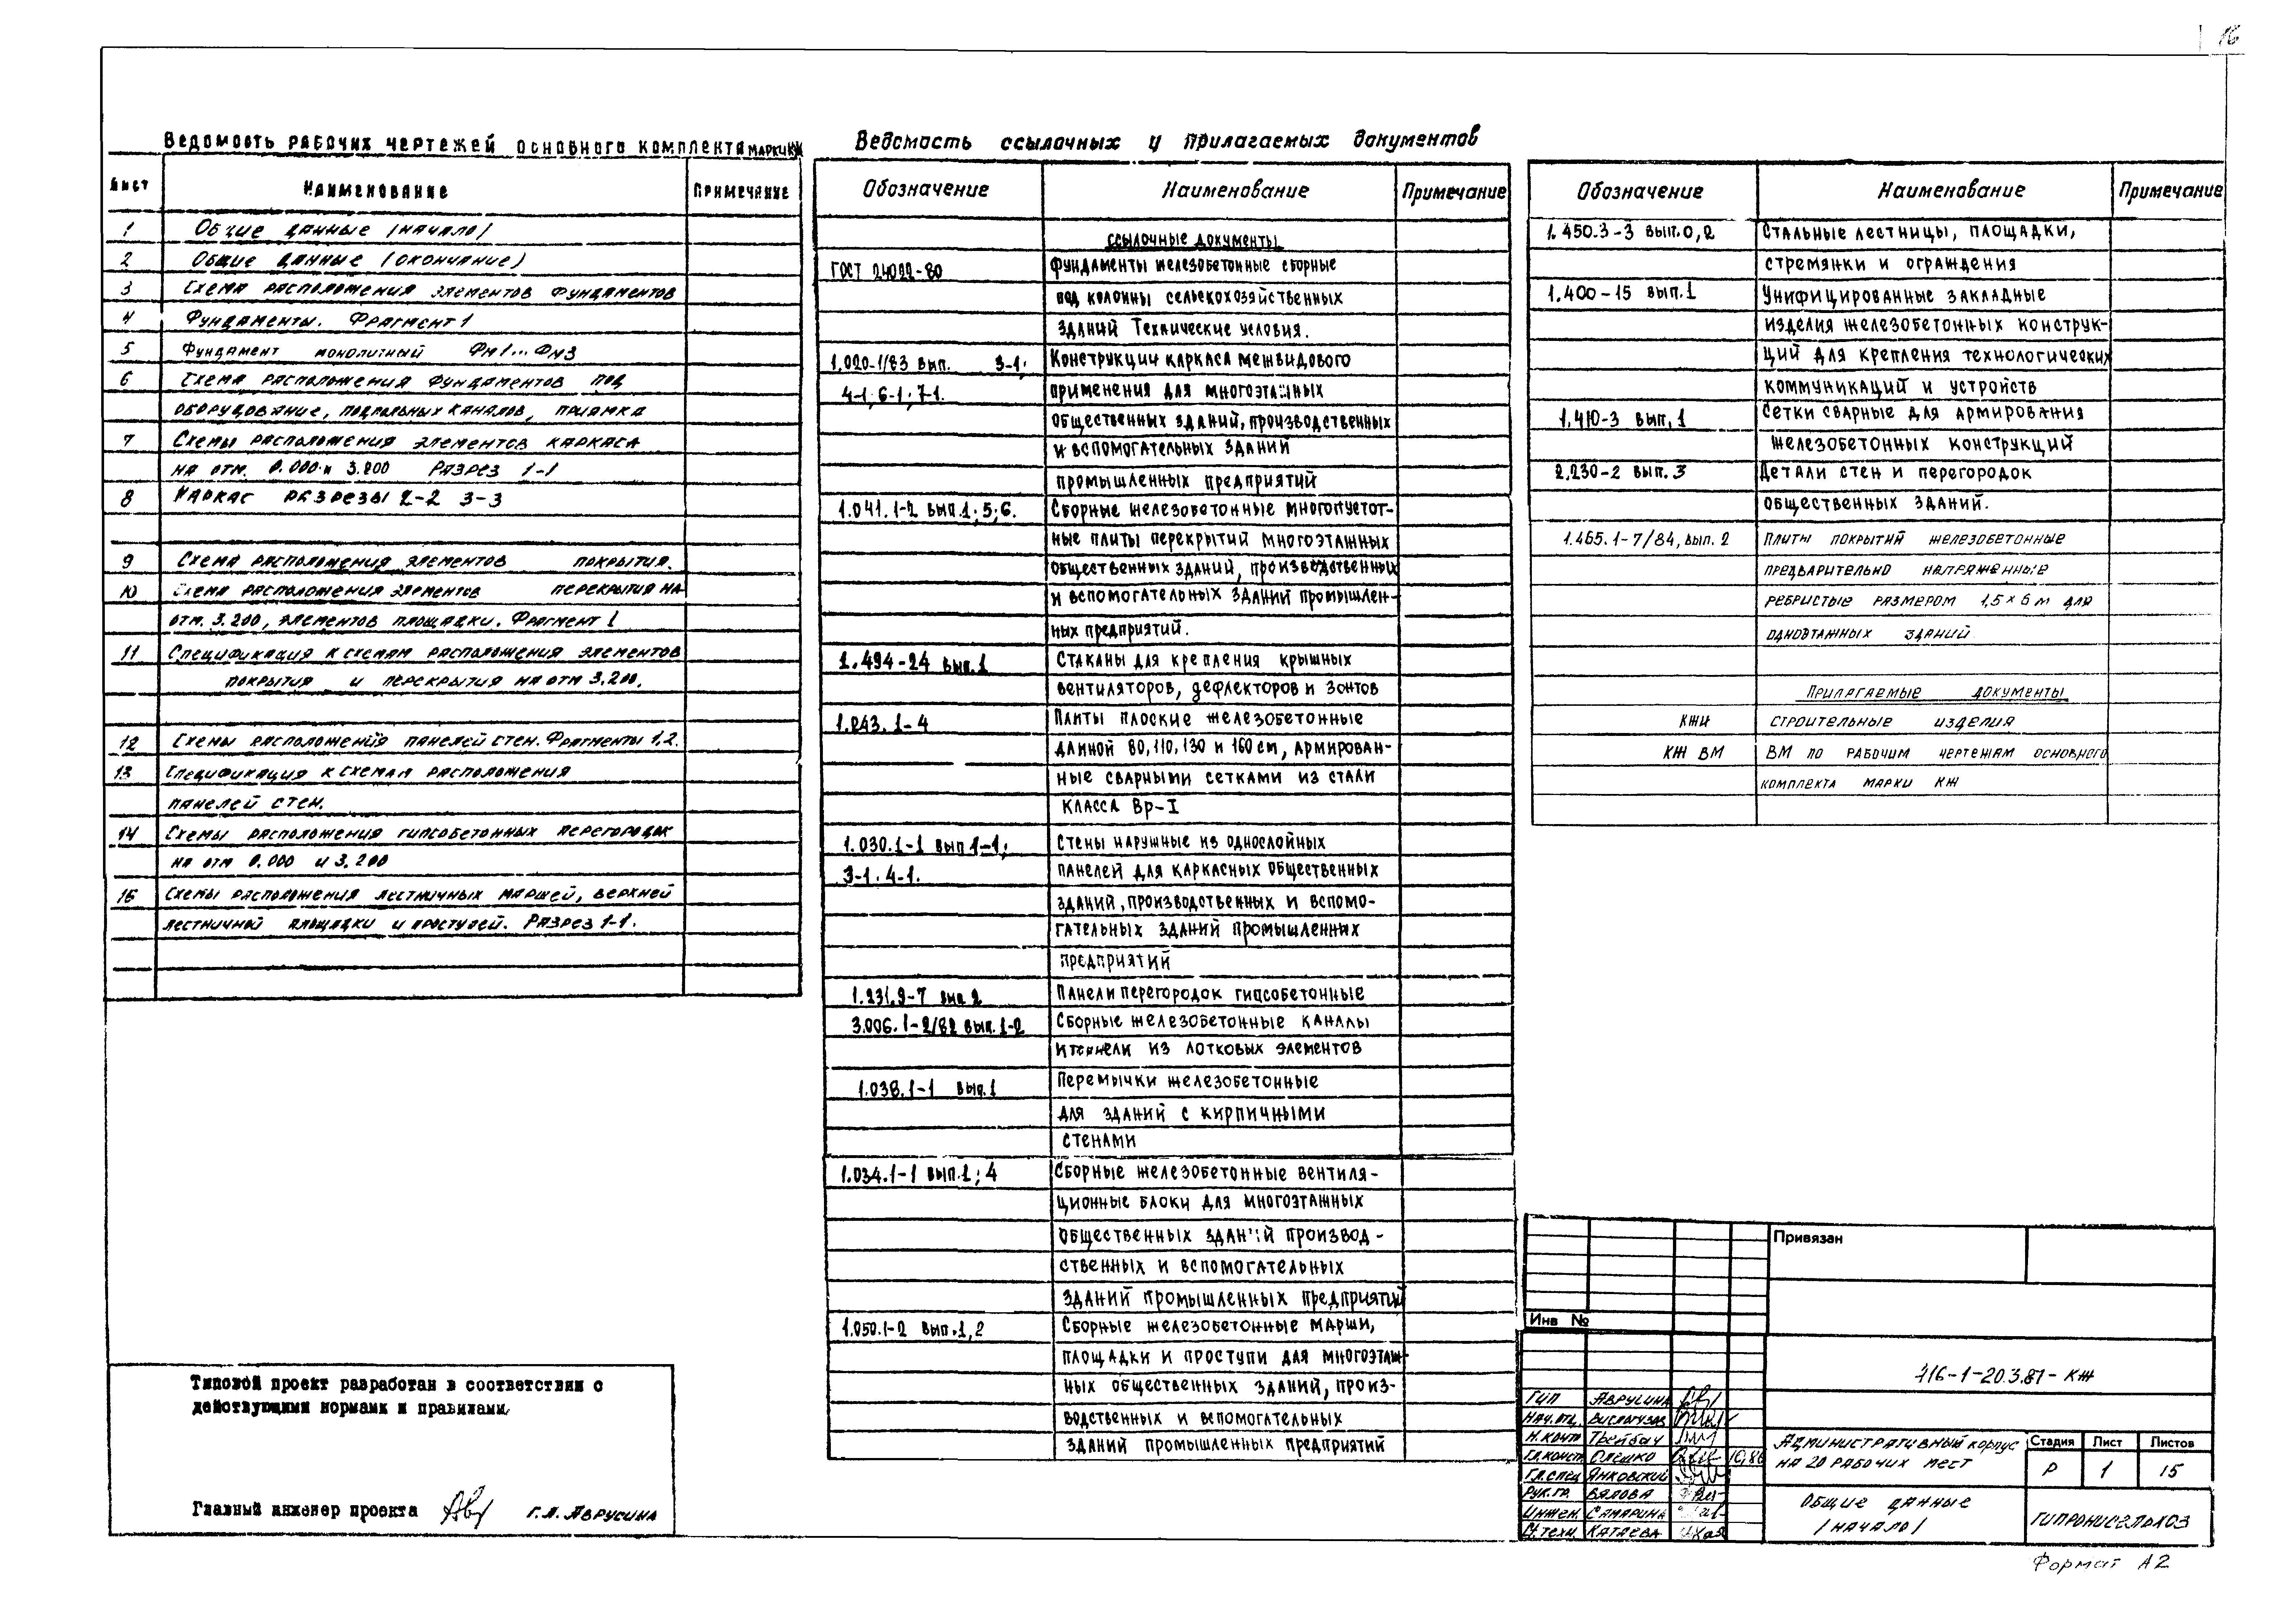 16
Ведомость рабочих чертежей основного комплекта марки КЖ
Лист Наименование Примечание
1 Общие данные /начало/
2 Общие данные (окончание)
3 Схема расположения элементов фундаментов
4 Фундаменты. Фрагмент 1
5 Фундамент монолитный ФМ1...ФМ3
6 Схема расположения фундаментов под
оборудование, подпольных каналов, приямка
7 Схемы расположения элементов каркаса
на отм. 0.000 и 3.200 Разрез 1-1
8 Каркас разрезы 2-2 3-3
9 Схема расположения элементов покрытия.
10 Схема расположения элементов перекрытия на
отм. 3.200, элементов площадки. Фрагмент 1
11 Спецификация к схемам расположения элементов
покрытия и перекрытия на отм 3.200.
12 Схемы расположения панелей стен. Фрагменты 1,2.
13 Спецификация к схемам расположения
панелей стен.
14 Схемы расположения гипсобетонных перегородок
на отм 0.000 и 3.200
15 Схемы расположения лестничных маршей, верхней
лестничной площадки и проступей. Разрез 1-1.
Типовой проект разработан в соответствии с
действующими нормами и правилами.
Главный инженер проекта Г.Л. Аврусина
Ведомость ссылочных и прилагаемых документов
Обозначение Наименование Примечание
ссылочные документы
ГОСТ 24022-80 Фундаменты железобетонные сборные
под колонны сельскохозяйственных
зданий Технические условия.
1.020-1/83 вып. 3-1; Конструкции каркаса межвидового
4-1; 6-1; 7-1. применения для многоэтажных
общественных зданий, производственных
и вспомогательных зданий
промышленных предприятий
1.041.1-2 вып.1; 5; 6. Сборные железобетонные многопустот-
ные плиты перекрытий многоэтажных
общественных зданий, производственных
и вспомогательных зданий промышлен-
ных предприятий.
1.494-24 вып.1 Стаканы для крепления крышных
вентиляторов, дефлекторов и зонтов
1.243.1-4 Плиты плоские железобетонные
длиной 80, 110, 130 и 160 см, армирован-
ные сварными сетками из стали
класса Вр-I
1.030.1-1 вып 1-1; Стены наружные из однослойных
3-1. 4-1. панелей для каркасных общественных
зданий, производственных и вспомо-
гательных зданий промышленных
предприятий
1.231.9-7 вып 2 Панели перегородок гипсобетонные
3.006.1-2/82 вып. 1-2 Сборные железобетонные каналы
и тоннели из лотковых элементов
1.038.1-1 вып.1 Перемычки железобетонные
для зданий с кирпичными
стенами
1.034.1-1 вып.1; 4 Сборные железобетонные вентиля-
ционные блоки для многоэтажных
общественных зданий производ-
ственных и вспомогательных
зданий промышленных предприятий
1.050.1-2 вып.1,2 Сборные железобетонные марши,
площадки и проступи для многоэтаж-
ных общественных зданий, произ-
водственных и вспомогательных
зданий промышленных предприятий
Обозначение Наименование Примечание
1.450.3-3 вып.0,2 Стальные лестницы, площадки,
стремянки и ограждения
1.400-15 вып.1 Унифицированные закладные
изделия железобетонных конструк-
ций для крепления технологических
коммуникаций и устройств
1.410-3 вып.1 Сетки сварные для армирования
железобетонных конструкций
2.230-2 вып.3 Детали стен и перегородок
общественных зданий.
1.465.1-7/84, вып. 2 Плиты покрытий железобетонные
предварительно напряженные
ребристые размером 1,5×6 м для
одноэтажных зданий
Прилагаемые документы
КЖИ строительные изделия
КЖ ВМ ВМ по рабочим чертежам основного
комплекта марки КЖ
Привязан
Инв №
416-1-203.87-КЖ
ГИП Аврусина
Нач. отд.
Н. контр Трейбач
Гл. констр Олешко 10,86
Гл. спец Янковский
Рук. гр. Вялова
Инжен. Самарина
Ст. техн. Катаева
Административный корпус
на 20 рабочих мест
Стадия Лист Листов
Р 1 15
Общие данные
/начало/
ГИПРОНИСЕЛЬХОЗ
Формат А2